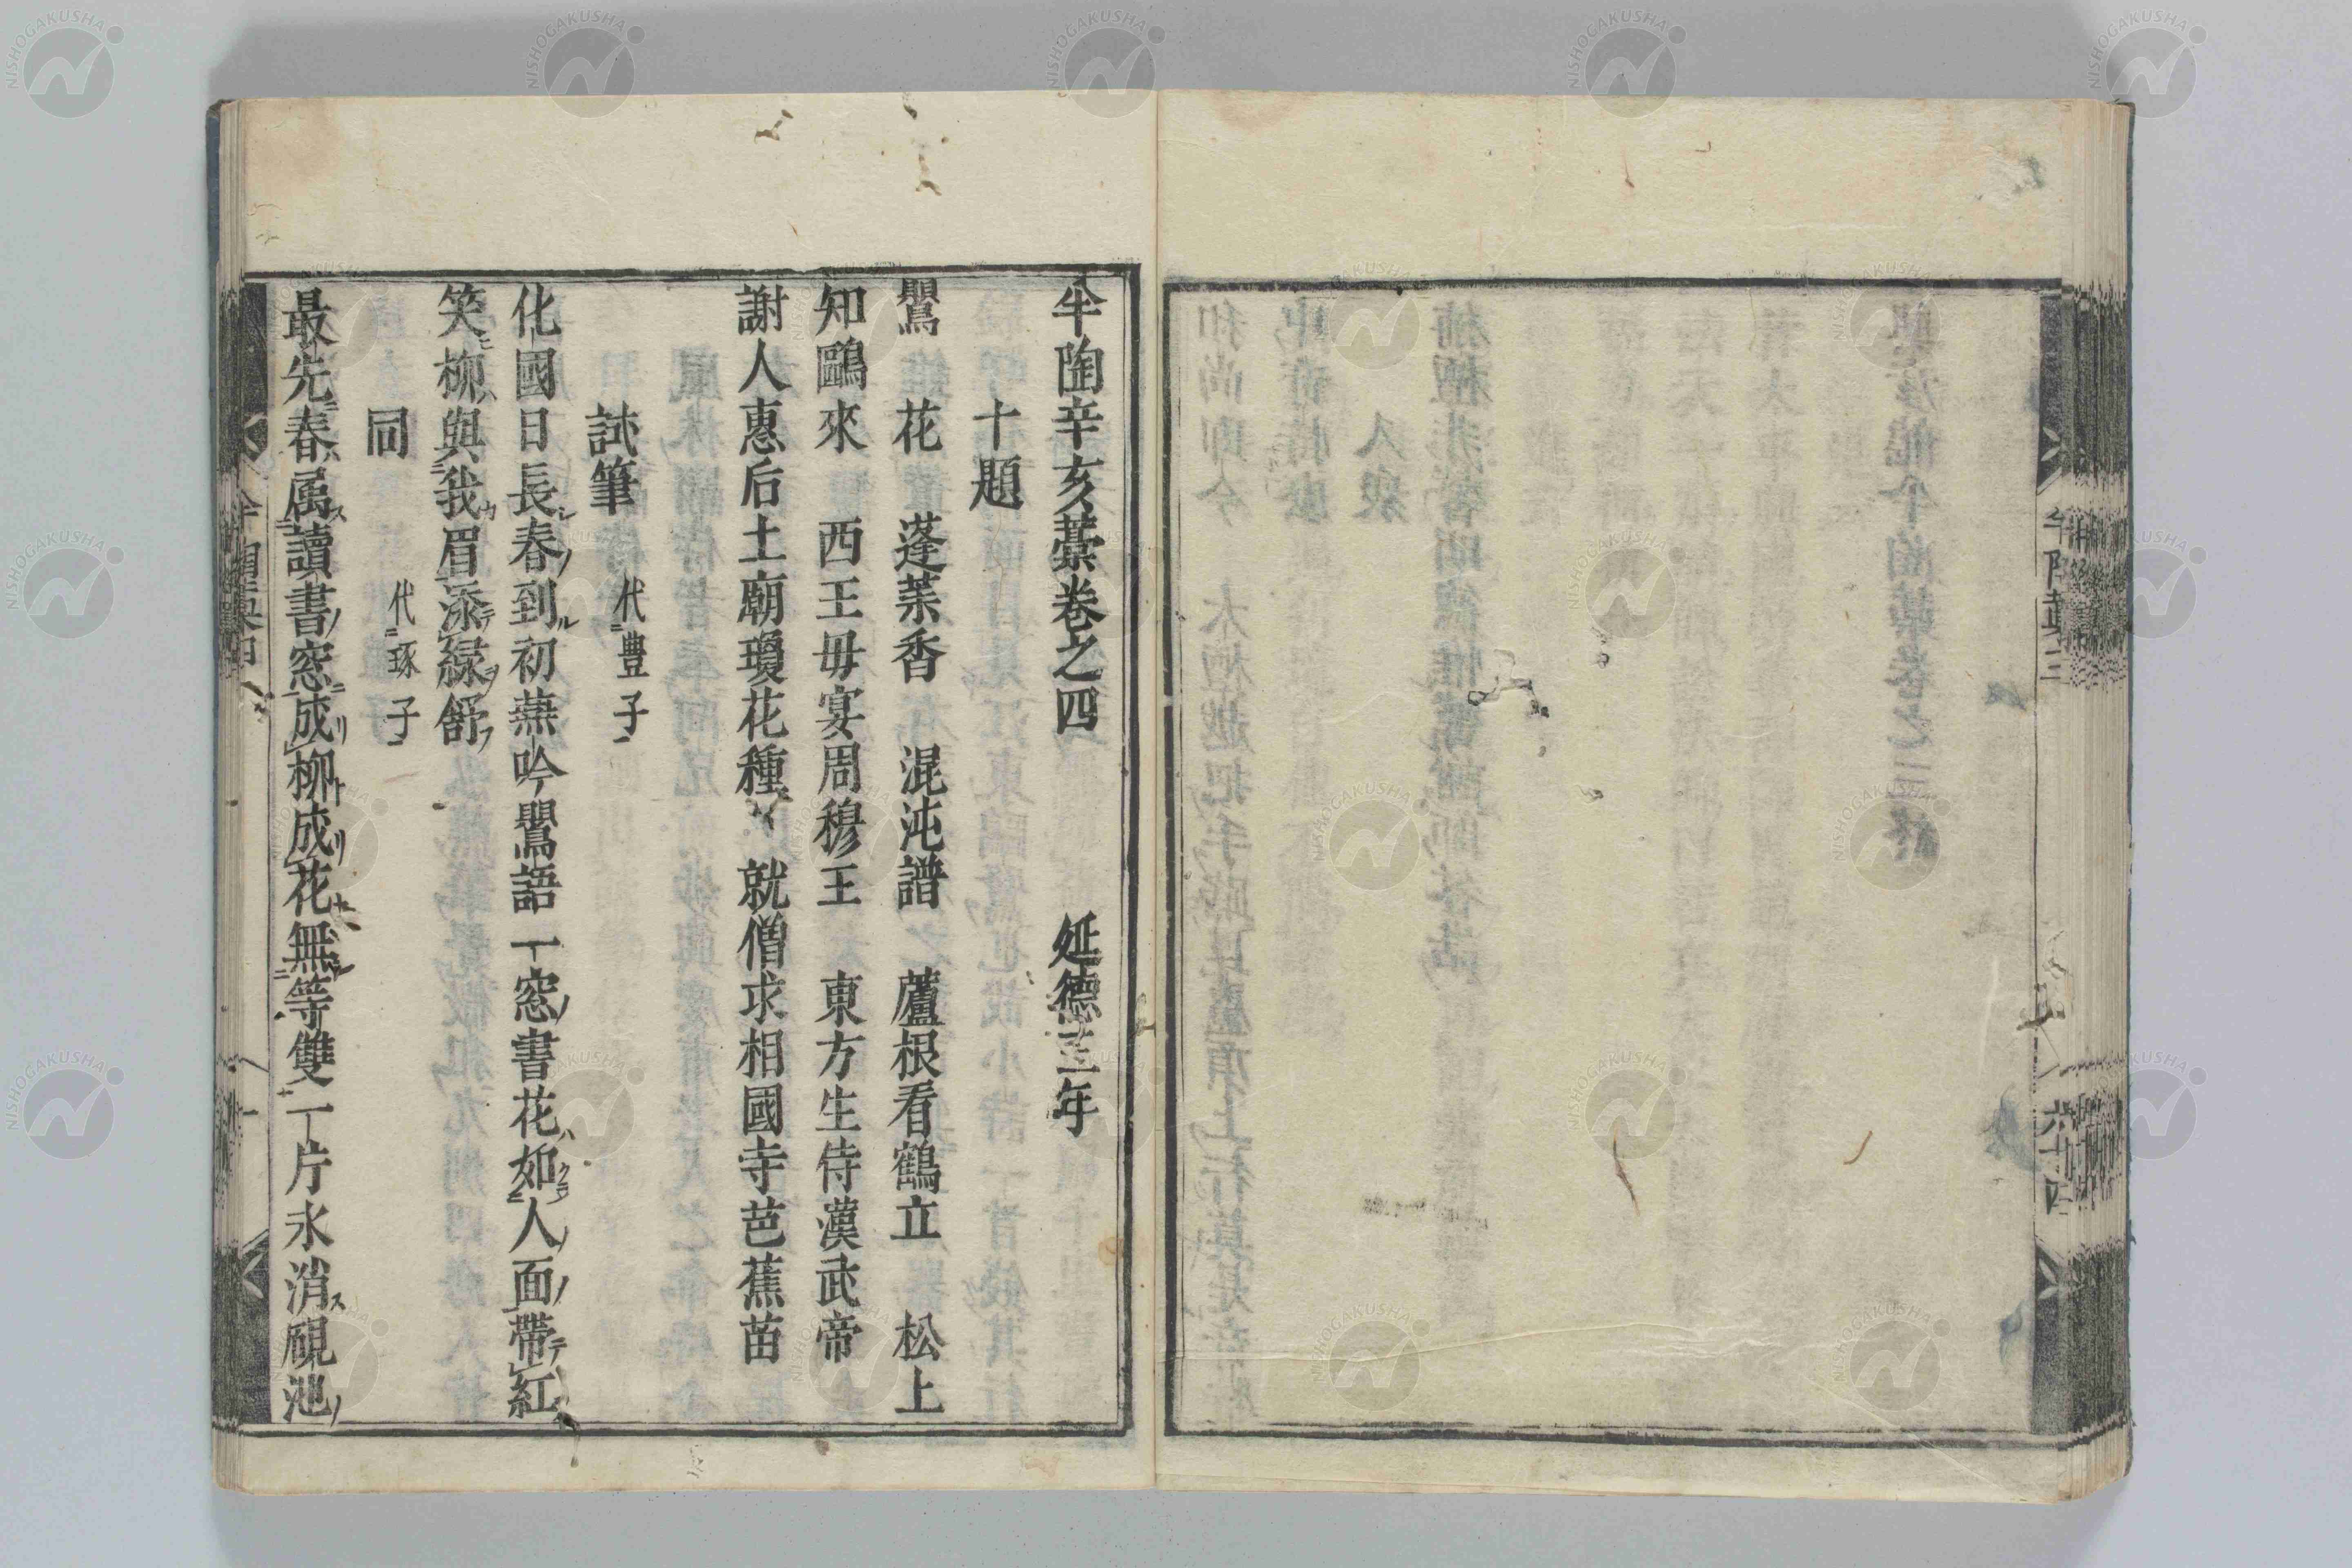 半陶辛亥藁卷之四　延德三年
十題
鸎花　蓬莱香　混沌譜　蘆根看鶴立　松上
知鷗來　西王毋宴周穆王　東方生侍漢武帝
謝人惠后土廟瓊花種　就僧求相國寺芭蕉苗
試筆　代豊子
化國日長春到初燕吟鸎語一窓書花如人面帶紅
笑柳與我眉添緑舒
同　代琢子
最先春属讀書窓成柳成花無等雙一片氷消硯池
NISHOGAKUSHA